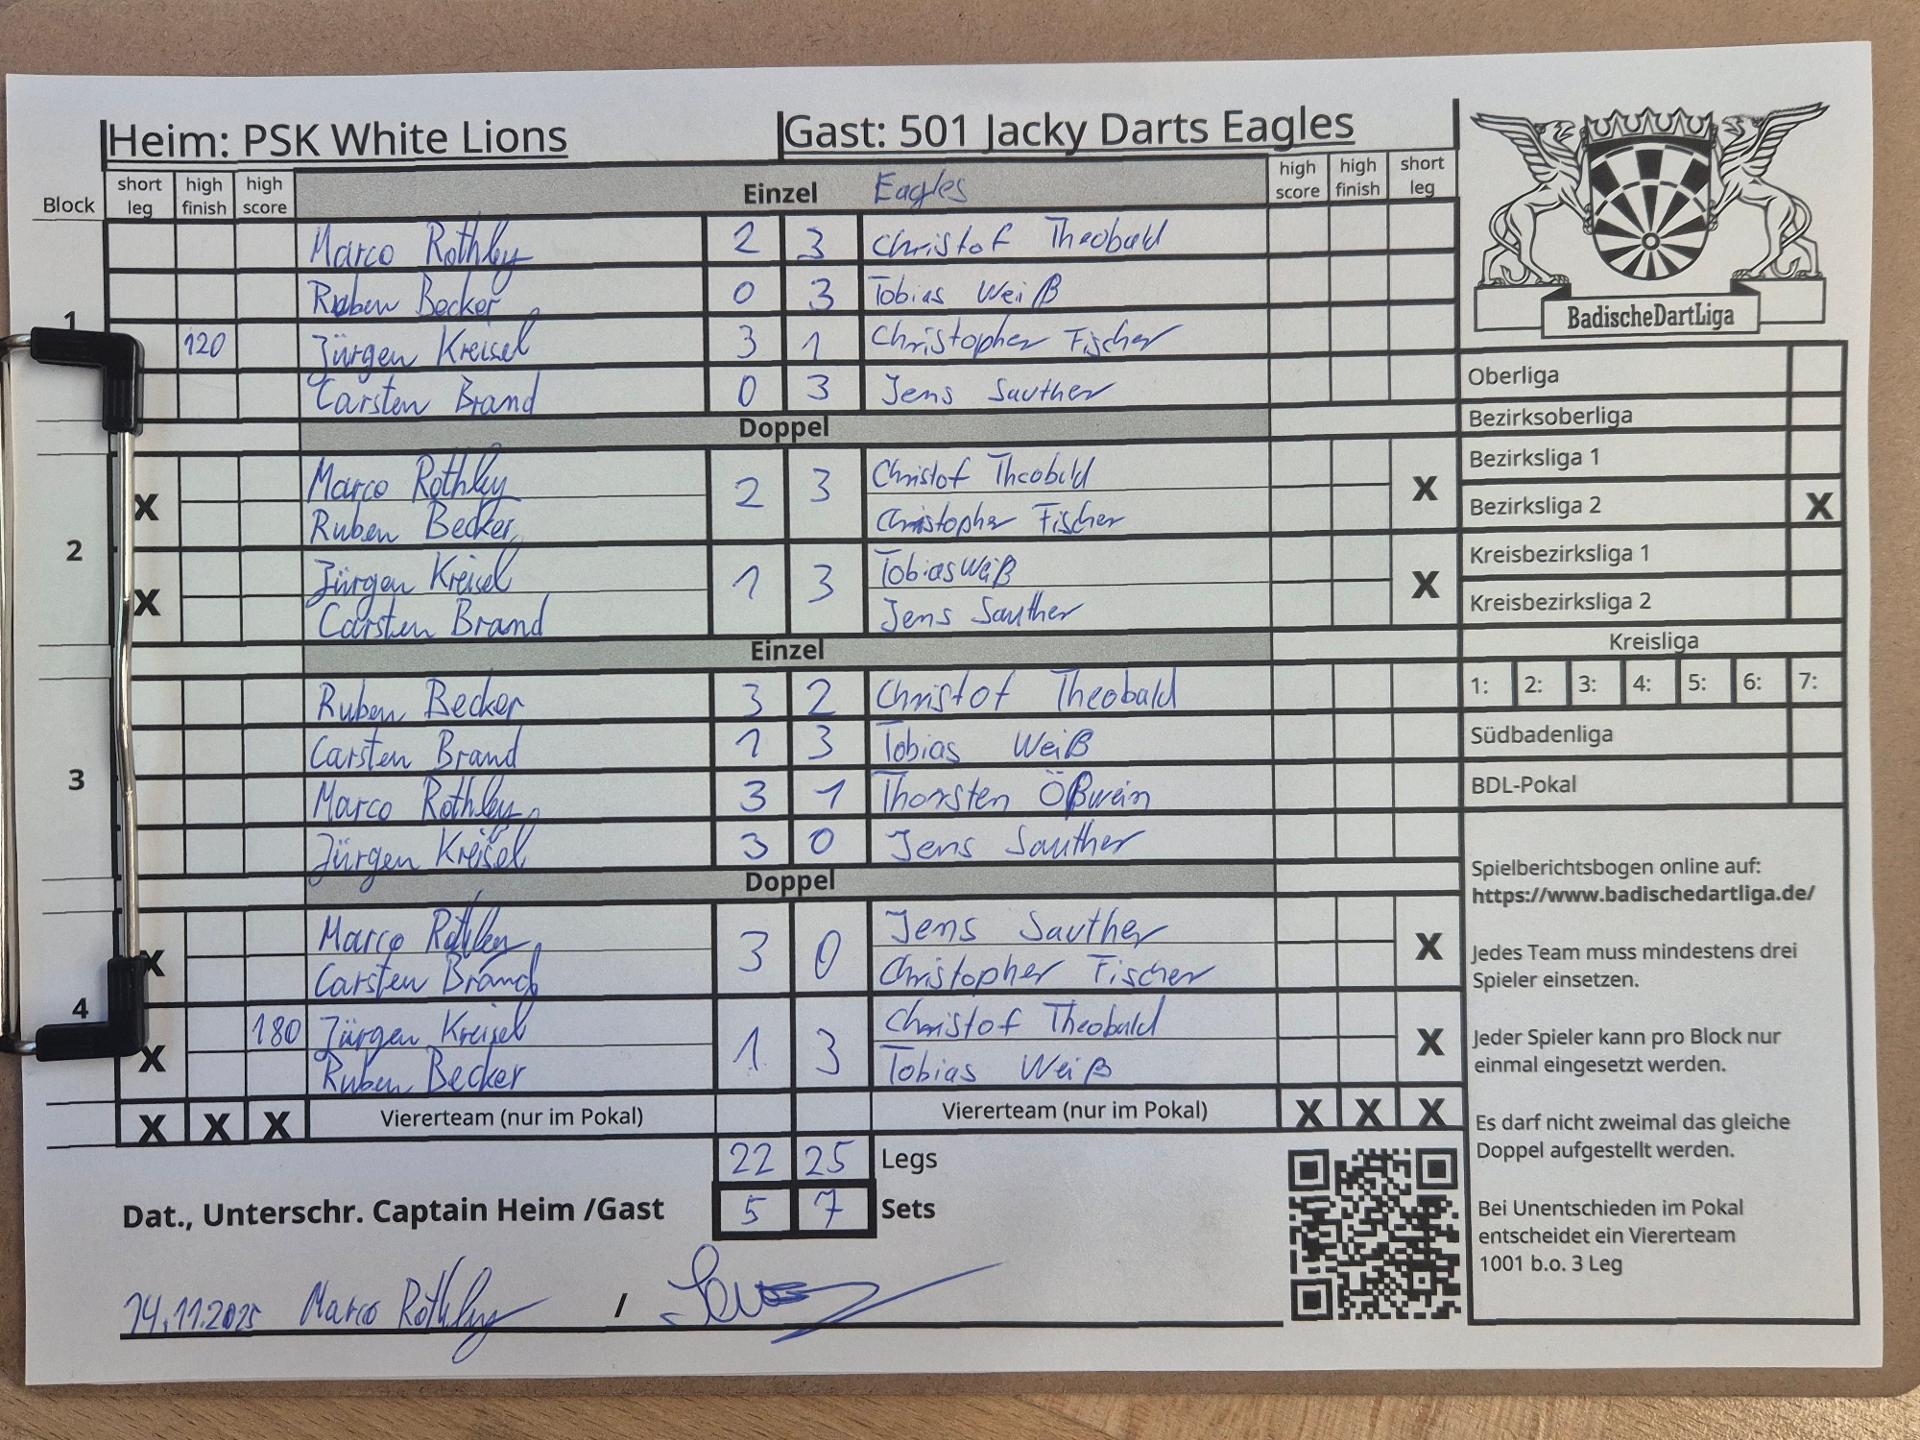 Heim: PSK White Lions Gast: 501 Jacky Darts Eagles
Block short leg high finish high score Einzel Eagles high score high finish short leg
1
Marco Rothley 2 3 Christof Theobald
Ruben Becker 0 3 Tobias Weiß
120 Jürgen Kreisel 3 1 Christopher Fischer
Carsten Brand 0 3 Jens Sauther
Doppel
2
X Marco Rothley 2 3 Christof Theobald X
Ruben Becker Christopher Fischer
X Jürgen Kreisel 1 3 Tobias Weiß X
Carsten Brand Jens Sauther
Einzel
3
Ruben Becker 3 2 Christof Theobald
Carsten Brand 1 3 Tobias Weiß
Marco Rothley 3 1 Thorsten Ößwein
Jürgen Kreisel 3 0 Jens Sauther
Doppel
4
X Marco Rothley 3 0 Jens Sauther X
Carsten Brand Christopher Fischer
X 180 Jürgen Kreisel 1 3 Christof Theobald X
Ruben Becker Tobias Weiß
X X X Viererteam (nur im Pokal) Viererteam (nur im Pokal) X X X
22 25 Legs
5 7 Sets
Dat., Unterschr. Captain Heim /Gast
14.11.2025 Marco Rothley /
BadischeDartLiga
Oberliga
Bezirksoberliga
Bezirksliga 1
Bezirksliga 2 X
Kreisbezirksliga 1
Kreisbezirksliga 2
Kreisliga
1: 2: 3: 4: 5: 6: 7:
Südbadenliga
BDL-Pokal
Spielberichtsbogen online auf:
https://www.badischedartliga.de/
Jedes Team muss mindestens drei
Spieler einsetzen.
Jeder Spieler kann pro Block nur
einmal eingesetzt werden.
Es darf nicht zweimal das gleiche
Doppel aufgestellt werden.
Bei Unentschieden im Pokal
entscheidet ein Viererteam
1001 b.o. 3 Leg